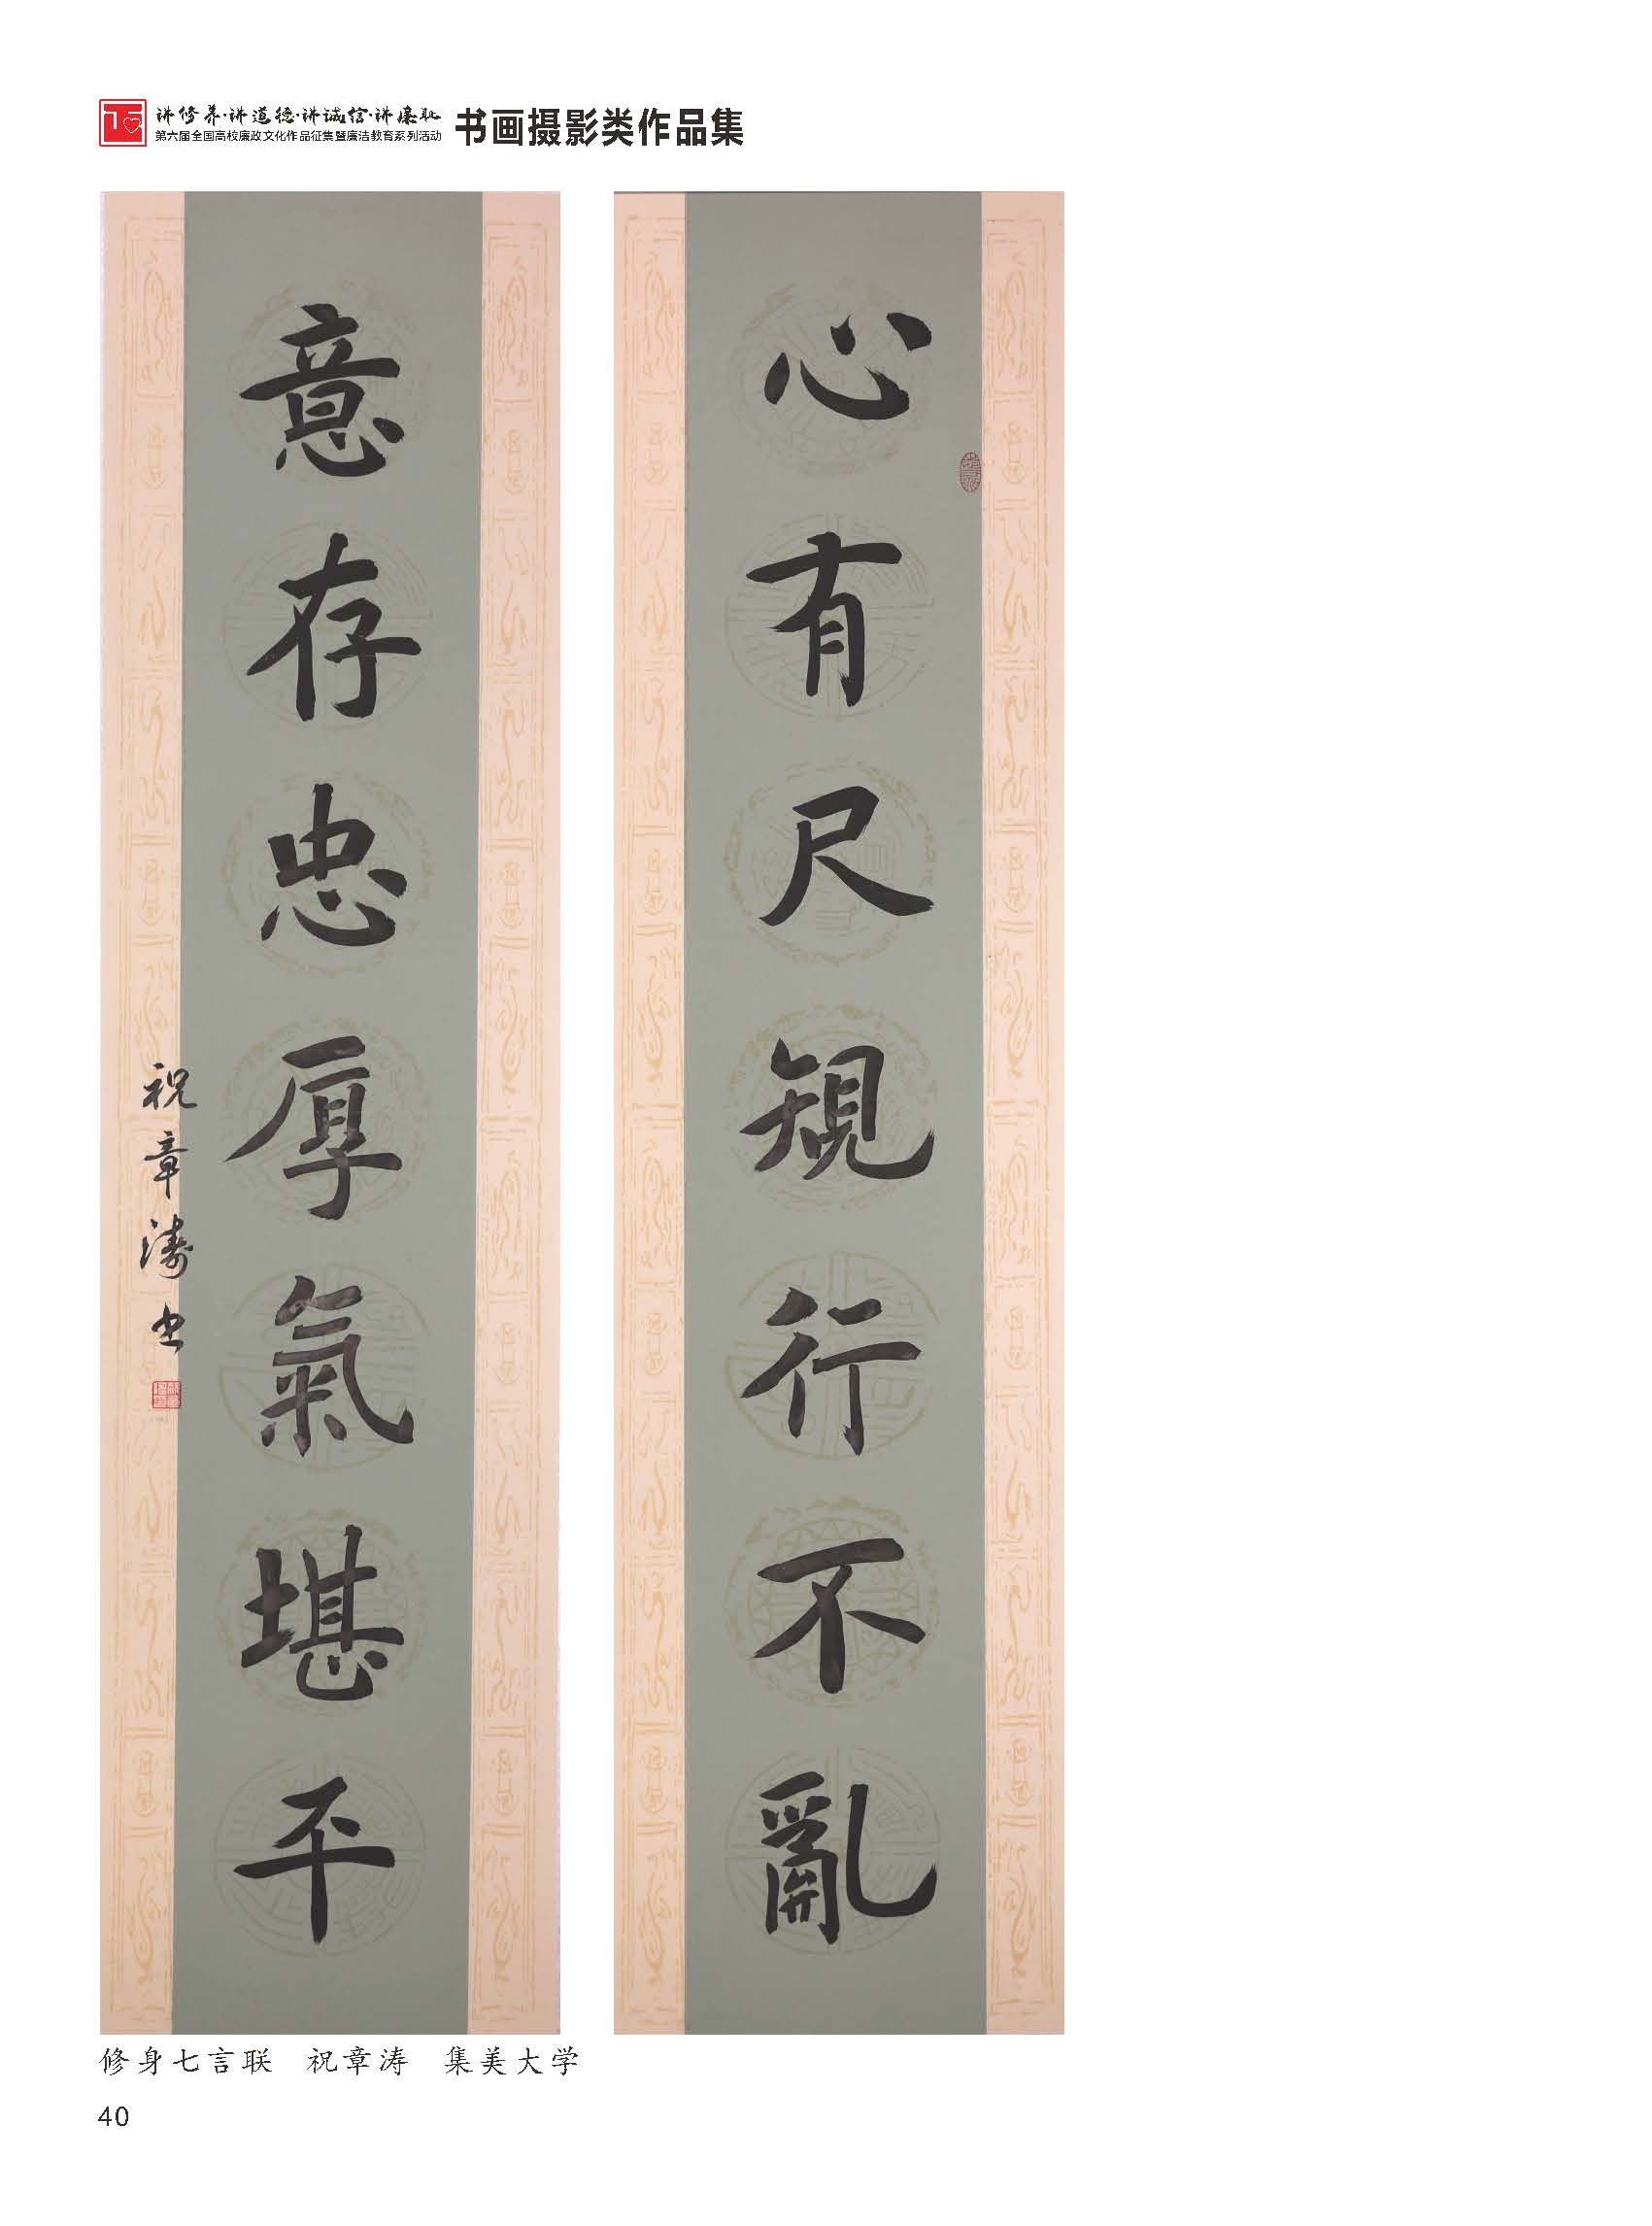 讲修养·讲道德·讲诚信·讲廉耻
第六届全国高校廉政文化作品征集暨廉洁教育系列活动
书画摄影类作品集
心有尺規行不亂
意存忠厚氣堪平
祝章濤书
修身七言联 祝章涛 集美大学
40